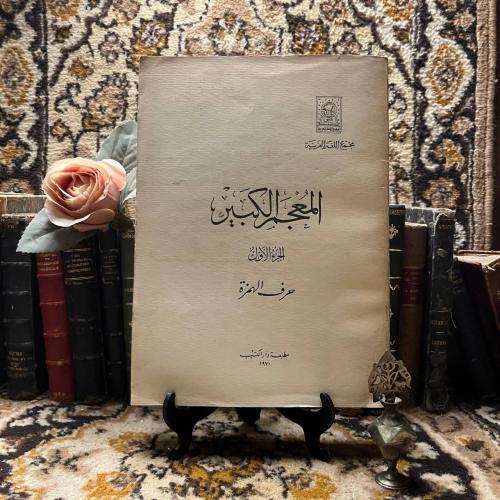 مجمع اللغة العربية
المُعْجَم الكبير
الجزء الأول
حرف الهمزة
مطبعة دار الكتب
١٩٧٠